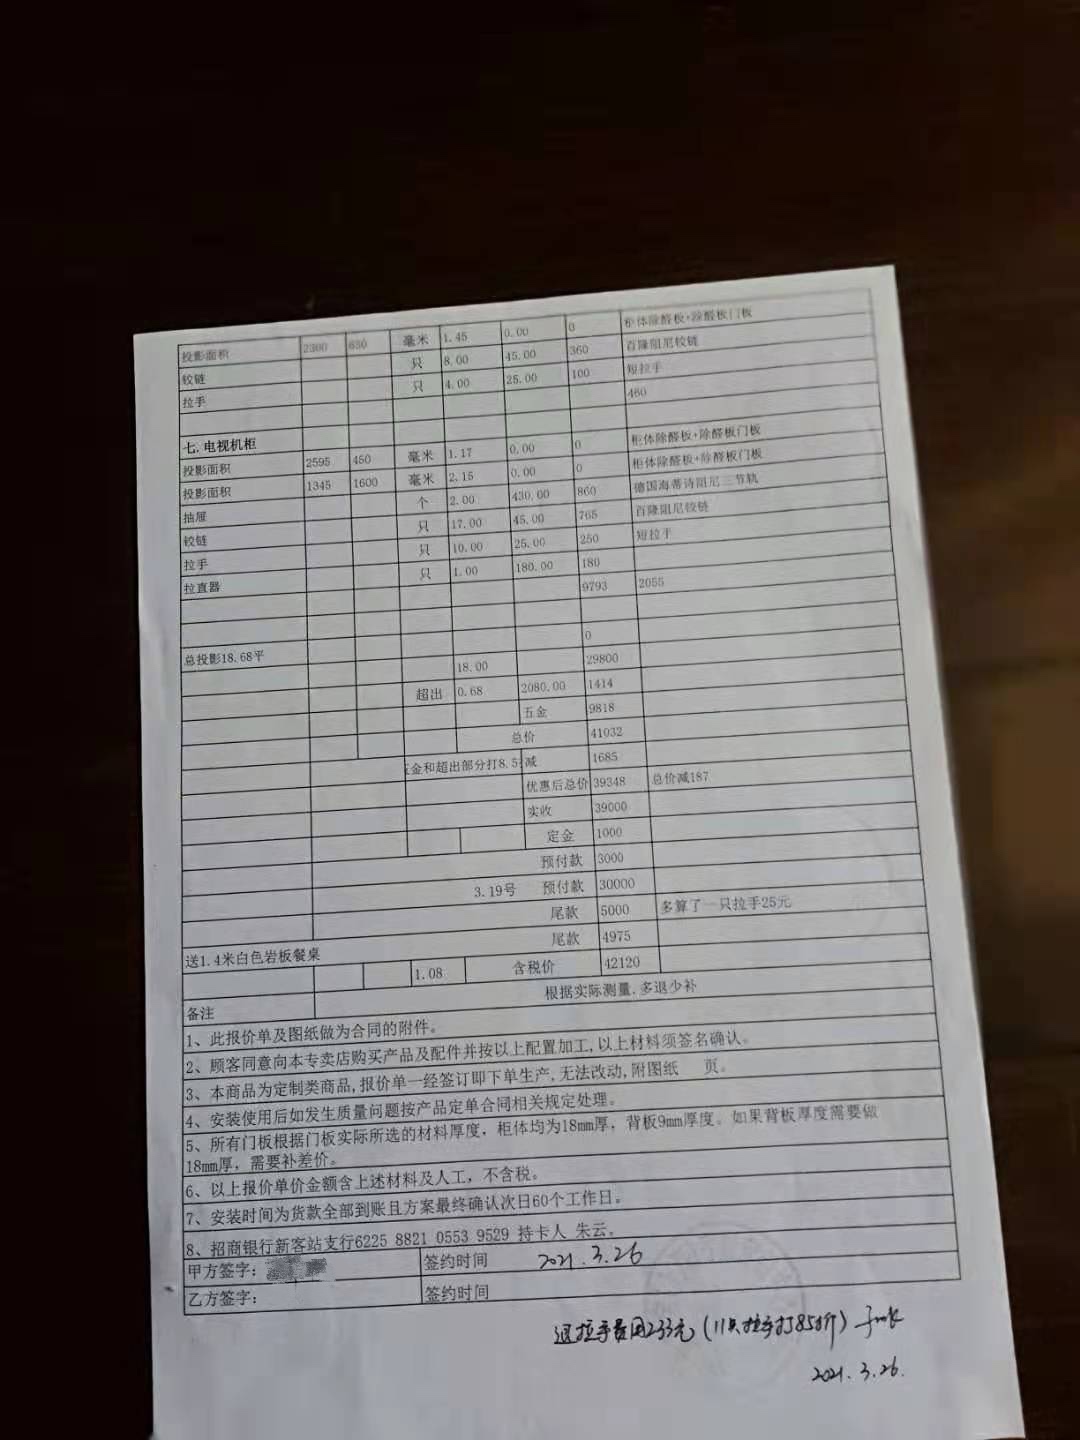 投影面积 2300 630 毫米 1.45 0.00 0 柜体除醛板+除醛板门板
铰链 只 8.00 45.00 360 百隆阻尼铰链
拉手 只 4.00 25.00 100 短拉手
460
七.电视机柜
投影面积 2595 450 毫米 1.17 0.00 0 柜体除醛板+除醛板门板
投影面积 1345 1600 毫米 2.15 0.00 0 柜体除醛板+除醛板门板
抽屉 个 2.00 430.00 860 德国海蒂诗阻尼三节轨
铰链 只 17.00 45.00 765 百隆阻尼铰链
拉手 只 10.00 25.00 250 短拉手
拉直器 只 1.00 180.00 180
9793 2055
总投影18.68平 0
18.00 29800
超出 0.68 2080.00 1414
五金 9818
总价 41032
五金和超出部分打8.5折 减 1685
优惠后总价 39348 总价减187
实收 39000
定金 1000
预付款 3000
3.19号 预付款 30000
尾款 5000 多算了一只拉手25元
送1.4米白色岩板餐桌 尾款 4975
1.08 含税价 42120
备注 根据实际测量.多退少补
1、此报价单及图纸做为合同的附件。
2、顾客同意向本专卖店购买产品及配件并按以上配置加工,以上材料须签名确认。
3、本商品为定制类商品,报价单一经签订即下单生产,无法改动,附图纸 页。
4、安装使用后如发生质量问题按产品定单合同相关规定处理。
5、所有门板根据门板实际所选的材料厚度，柜体均为18mm厚，背板9mm厚度。如果背板厚度需要做
18mm厚，需要补差价。
6、以上报价单价金额含上述材料及人工，不含税。
7、安装时间为货款全部到账且方案最终确认次日60个工作日。
8、招商银行新客站支行6225 8821 0553 9529 持卡人 朱云。
甲方签字： 签约时间 2021.3.26
乙方签字： 签约时间
退拉手费用233元(11只拉手打85折)
2021.3.26.